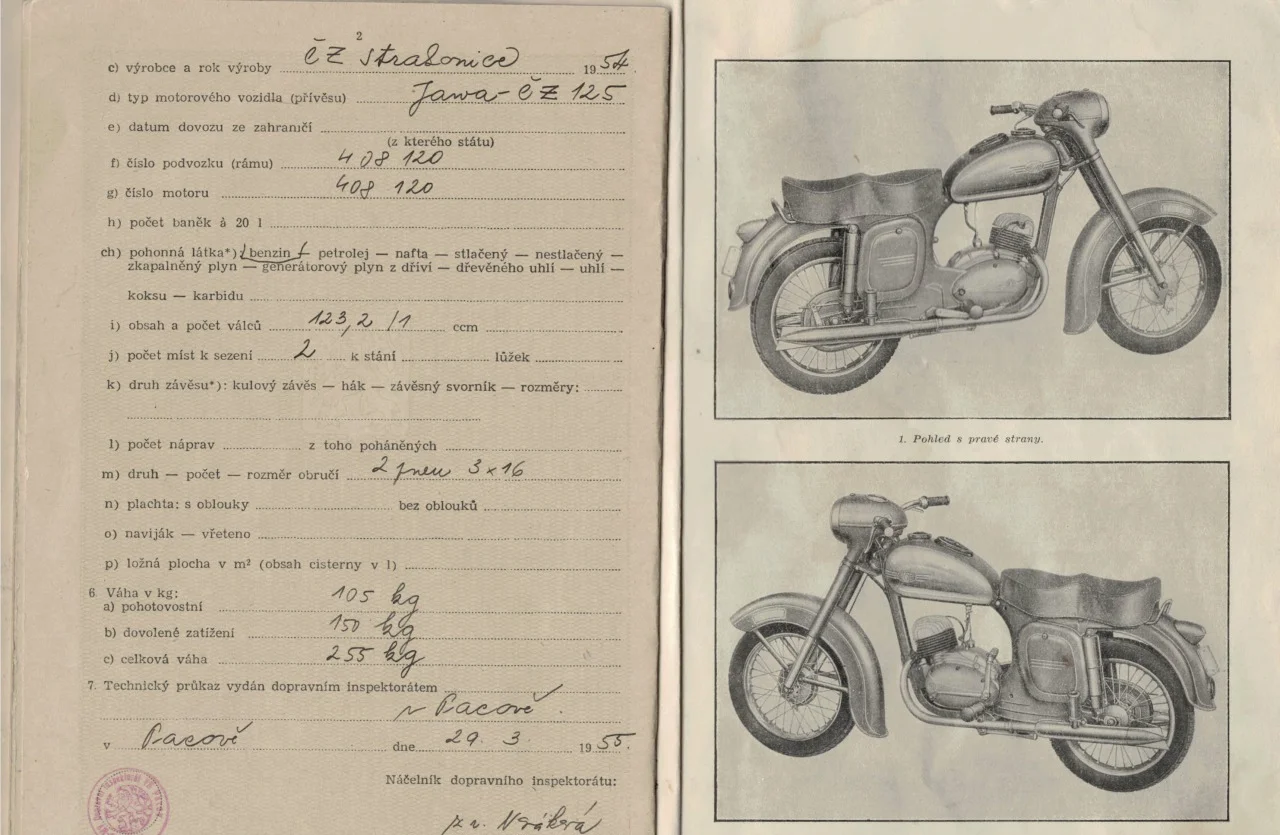 2
c) výrobce a rok výroby ČZ Strakonice 1954
d) typ motorového vozidla (přívěsu) Jawa-ČZ 125
e) datum dovozu ze zahraničí
(z kterého státu)
f) číslo podvozku (rámu) 408 120
g) číslo motoru 408 120
h) počet baněk à 20 l
ch) pohonná látka*) benzin — petrolej — nafta — stlačený — nestlačený —
zkapalněný plyn — generátorový plyn z dříví — dřevěného uhlí — uhlí —
koksu — karbidu
i) obsah a počet válců 123,2 /1 ccm
j) počet míst k sezení 2 k stání lůžek
k) druh závěsu*): kulový závěs — hák — závěsný svorník — rozměry:
l) počet náprav z toho poháněných
m) druh — počet — rozměr obručí 2 pneu 3x16
n) plachta: s oblouky bez oblouků
o) naviják — vřeteno
p) ložná plocha v m² (obsah cisterny v l)
6. Váha v kg:
a) pohotovostní 105 kg
b) dovolené zatížení 150 kg
c) celková váha 255 kg
7. Technický průkaz vydán dopravním inspektorátem
v Pacově.
v Pacově dne 29. 3 1955.
Náčelník dopravního inspektorátu:
1. Pohled s pravé strany.